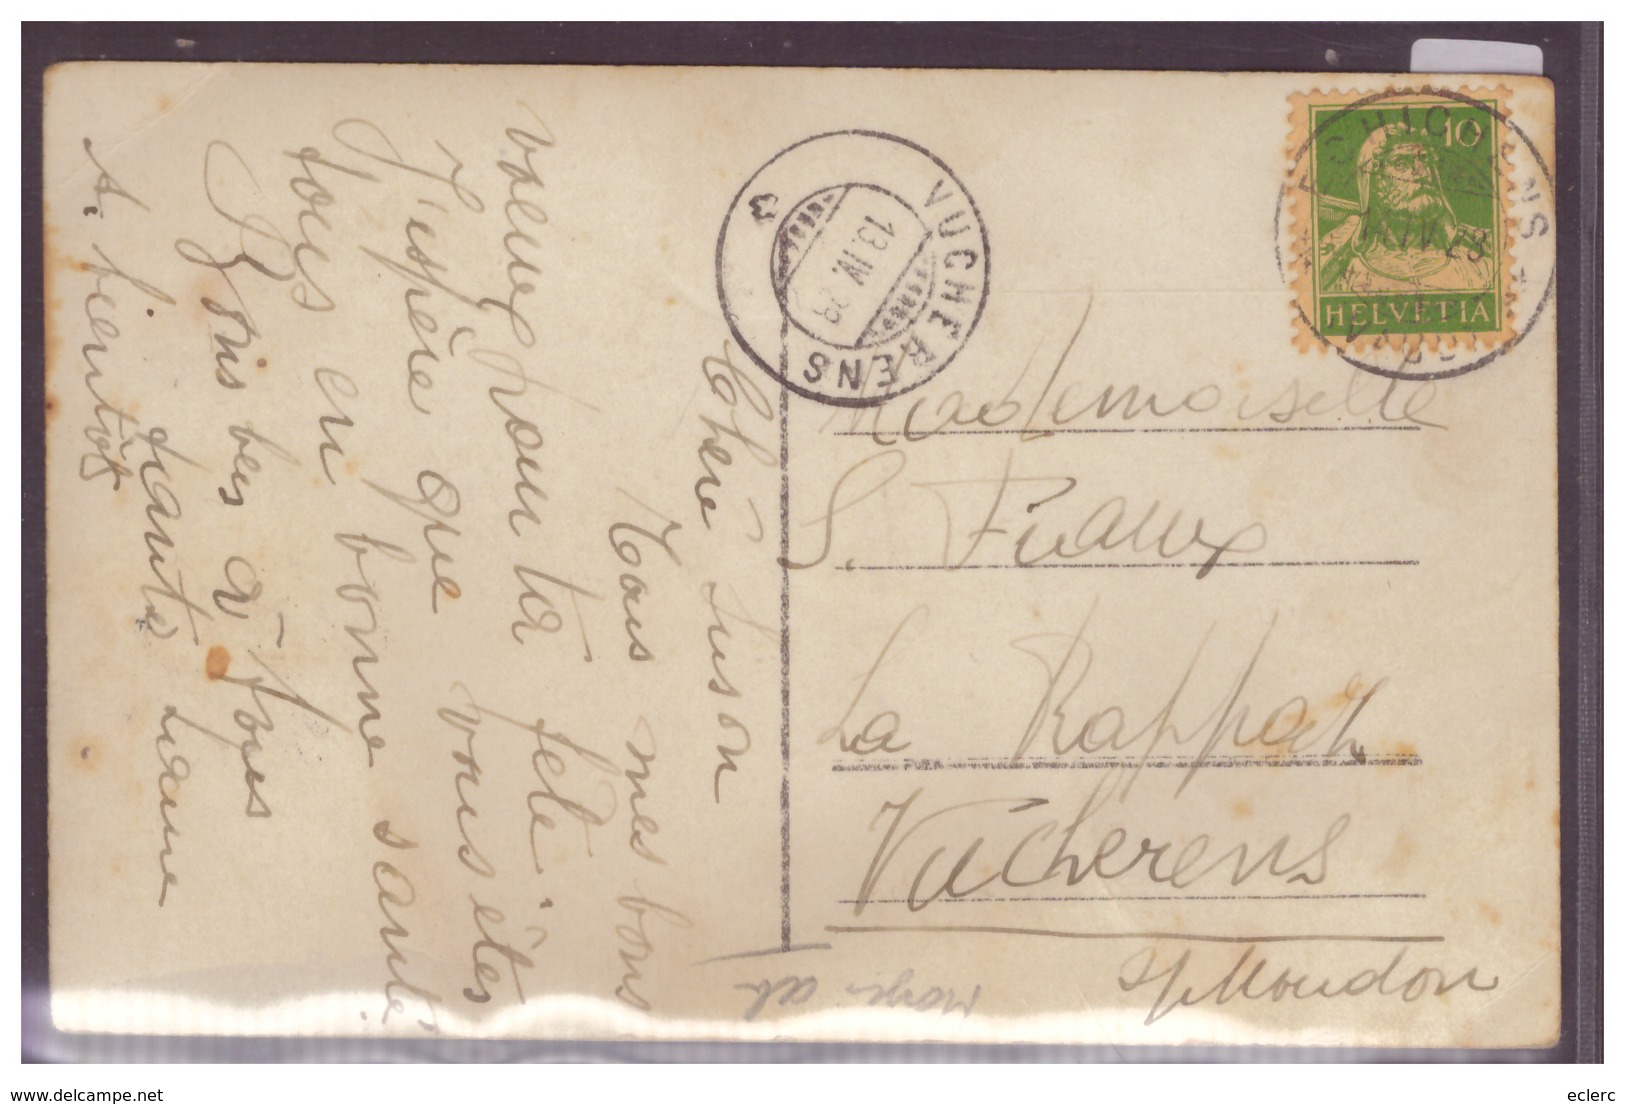 Chère Suson
Tous mes bons
voeux pour ta fête.
J'espère que vous êtes
tous en bonne santé
Gros bes à tous
A. bientôt
10
HELVETIA
VUCHERENS
13.IV.29
Mademoiselle
S.
La Rappaz
Vucherens
s/Moudon
delcampe.net
eclerc